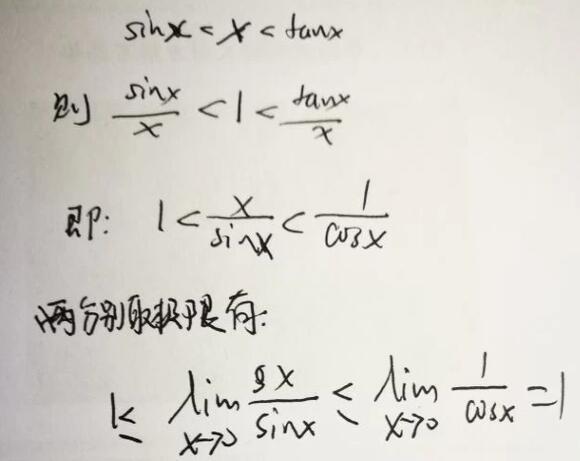 sinx < x < tanx
则 sinx/x < 1 < tanx/x
即: 1 < x/sinx < 1/cosx
两分别取极限有:
1 ≤ lim x→0 x/sinx ≤ lim x→0 1/cosx = 1